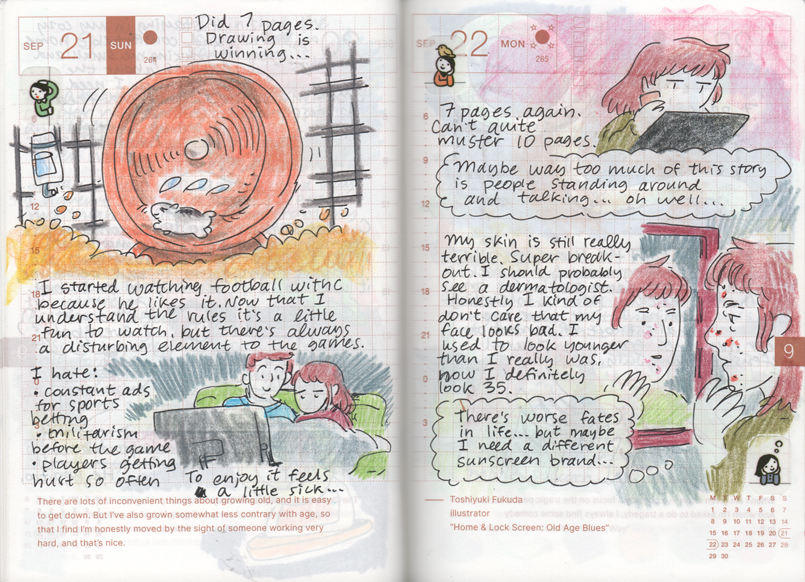 SEP 21 SUN
264
Did 7 pages.
Drawing is
winning...
6
12
15
18
21
0
3
I started watching football with C
because he likes it. Now that I
understand the rules it's a little
fun to watch, but there's always
a disturbing element to the games.
I hate:
• constant ads
for sports
betting
• militarism
before the game
• players getting
hurt so often
To enjoy it feels
a little sick...
There are lots of inconvenient things about growing old, and it is easy
to get down. But I've also grown somewhat less contrary with age, so
that I find I'm honestly moved by the sight of someone working very
hard, and that's nice.
SEP 22 MON
265
6
9
12
15
18
21
0
3
7 pages again.
Can't quite
muster 10 pages.
Maybe way too much of this story
is people standing around
and talking... oh well...
My skin is still really
terrible. Super break-
out. I should probably
see a dermatologist.
Honestly I kind of
don't care that my
face looks bad. I
used to look younger
than I really was,
now I definitely
look 35.
There's worse fates
in life... but maybe
I need a different
sunscreen brand...
9
Toshiyuki Fukuda
illustrator
"Home & Lock Screen: Old Age Blues"
M T W T F S S
1 2 3 4 5 6 7
8 9 10 11 12 13 14
15 16 17 18 19 20 21
22 23 24 25 26 27 28
29 30